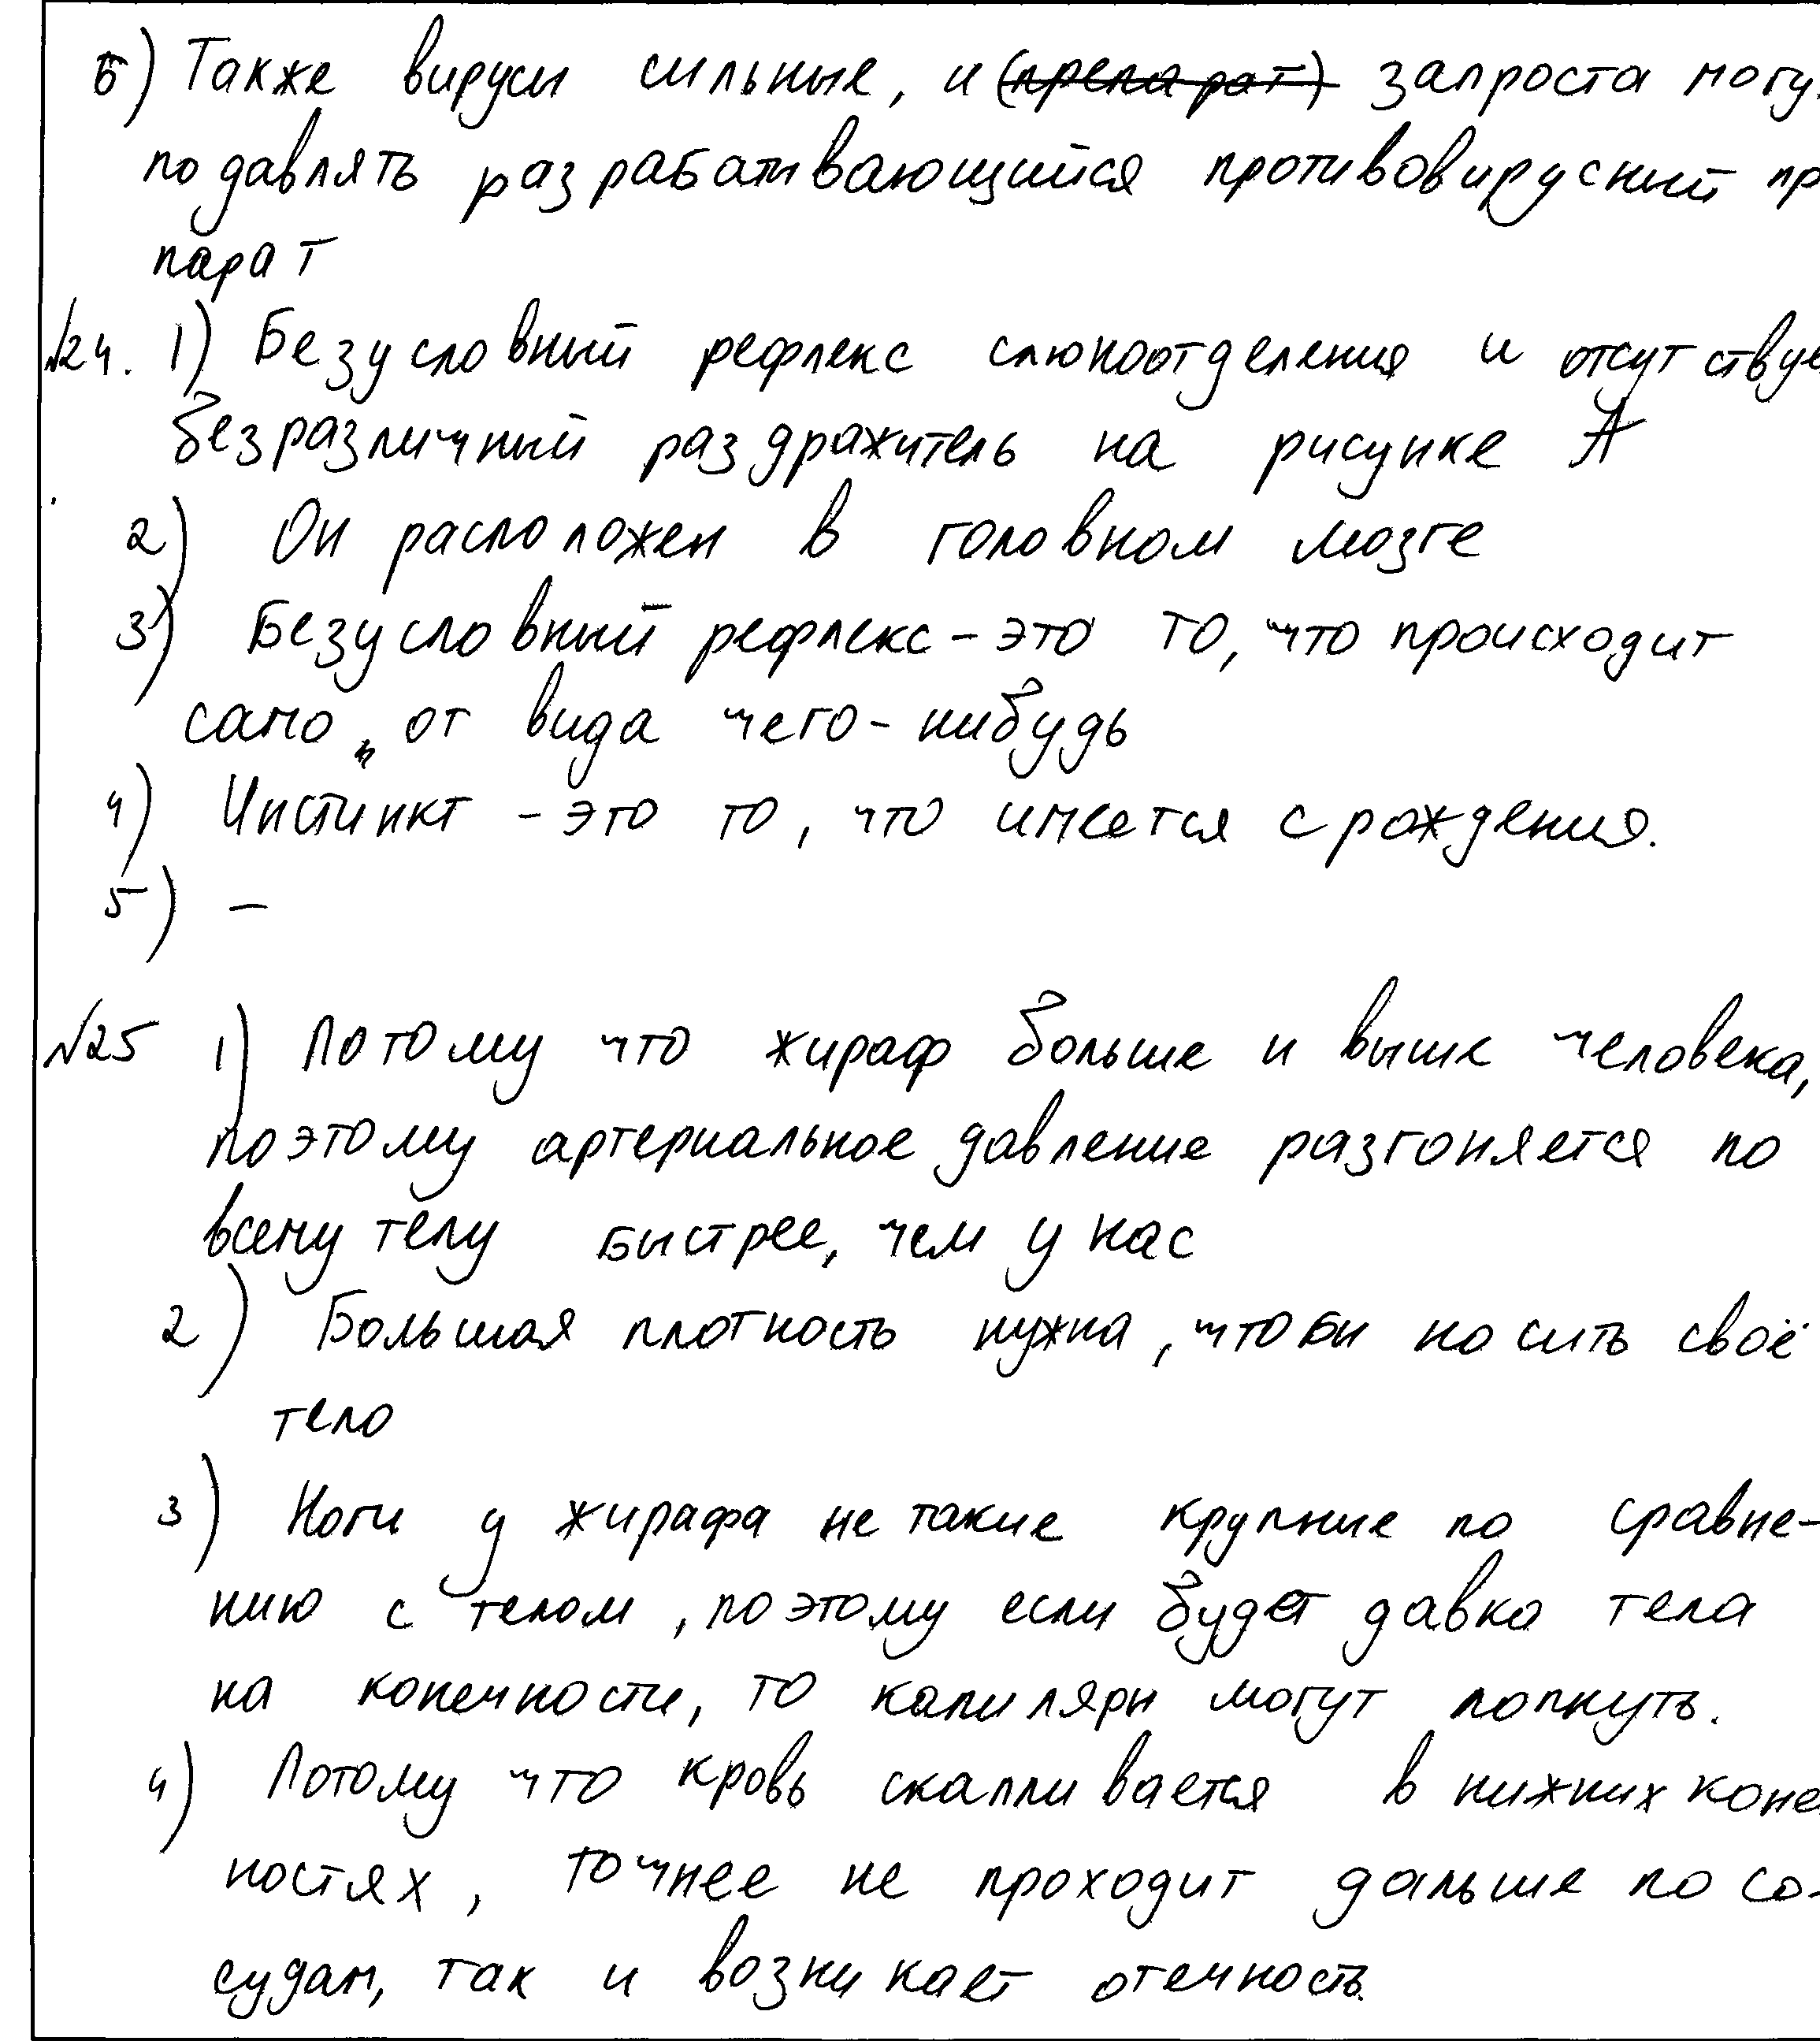 5) Также вирусы сильные, и (препарат) запроста могу
подавлять разрабатывающийся противовирусный пр
парат
№24. 1) Безусловный рефлекс слюноотделения и отсутствуе
безразличный раздражитель на рисунке А
2) Он расположен в головном мозге
3) Безусловный рефлекс - это то, что происходит
само, от вида чего-нибудь
4) Инстинкт - это то, что имеется с рождения.
5) –
№25 1) Потому что жираф больше и выше человека,
поэтому артериальное давление разгоняется по
всему телу быстрее, чем у нас
2) Большая плотность нужна, чтобы носить своё
тело
3) Ноги у жирафа не такие крупные по сравне-
нию с телом, поэтому если будет давка тела
на конечности, то капиляры могут лопнуть.
4) Потому что кровь скапливается в нижних коне
ностях, точнее не проходит дальше по со-
судам, так и возникает отечность.